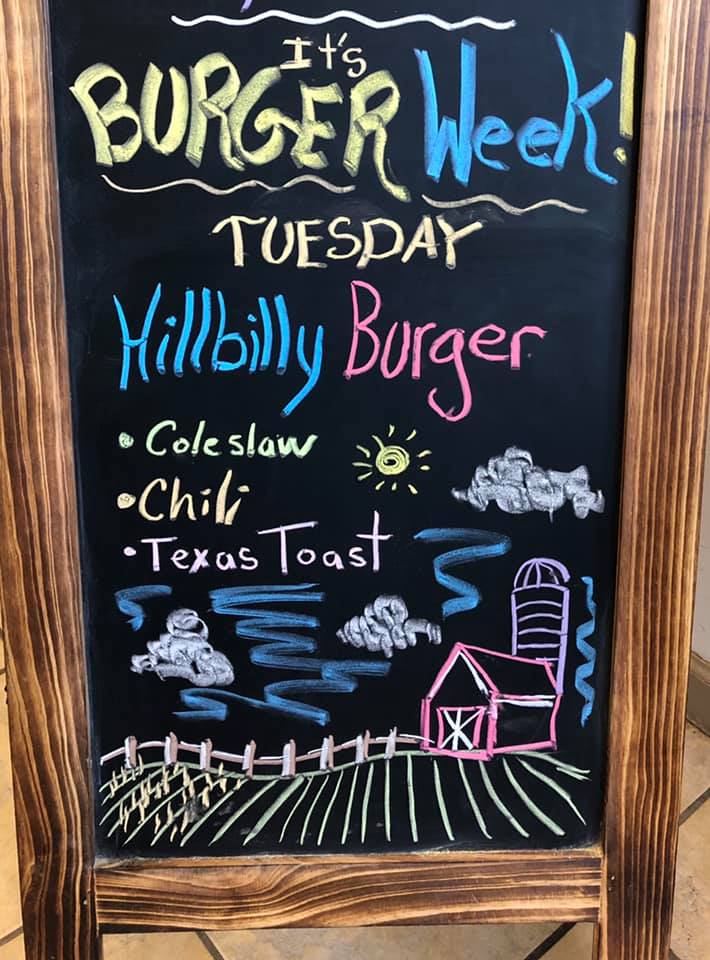 It's
BURGER Week!
TUESDAY
Hillbilly Burger
• Coleslaw
• Chili
• Texas Toast